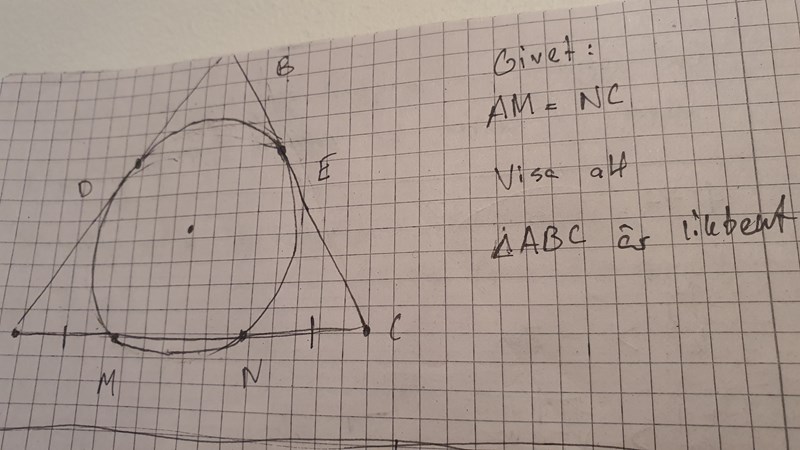 B
Givet:
AM = NC
D
E
Visa att
△ABC är likbent
C
M
N